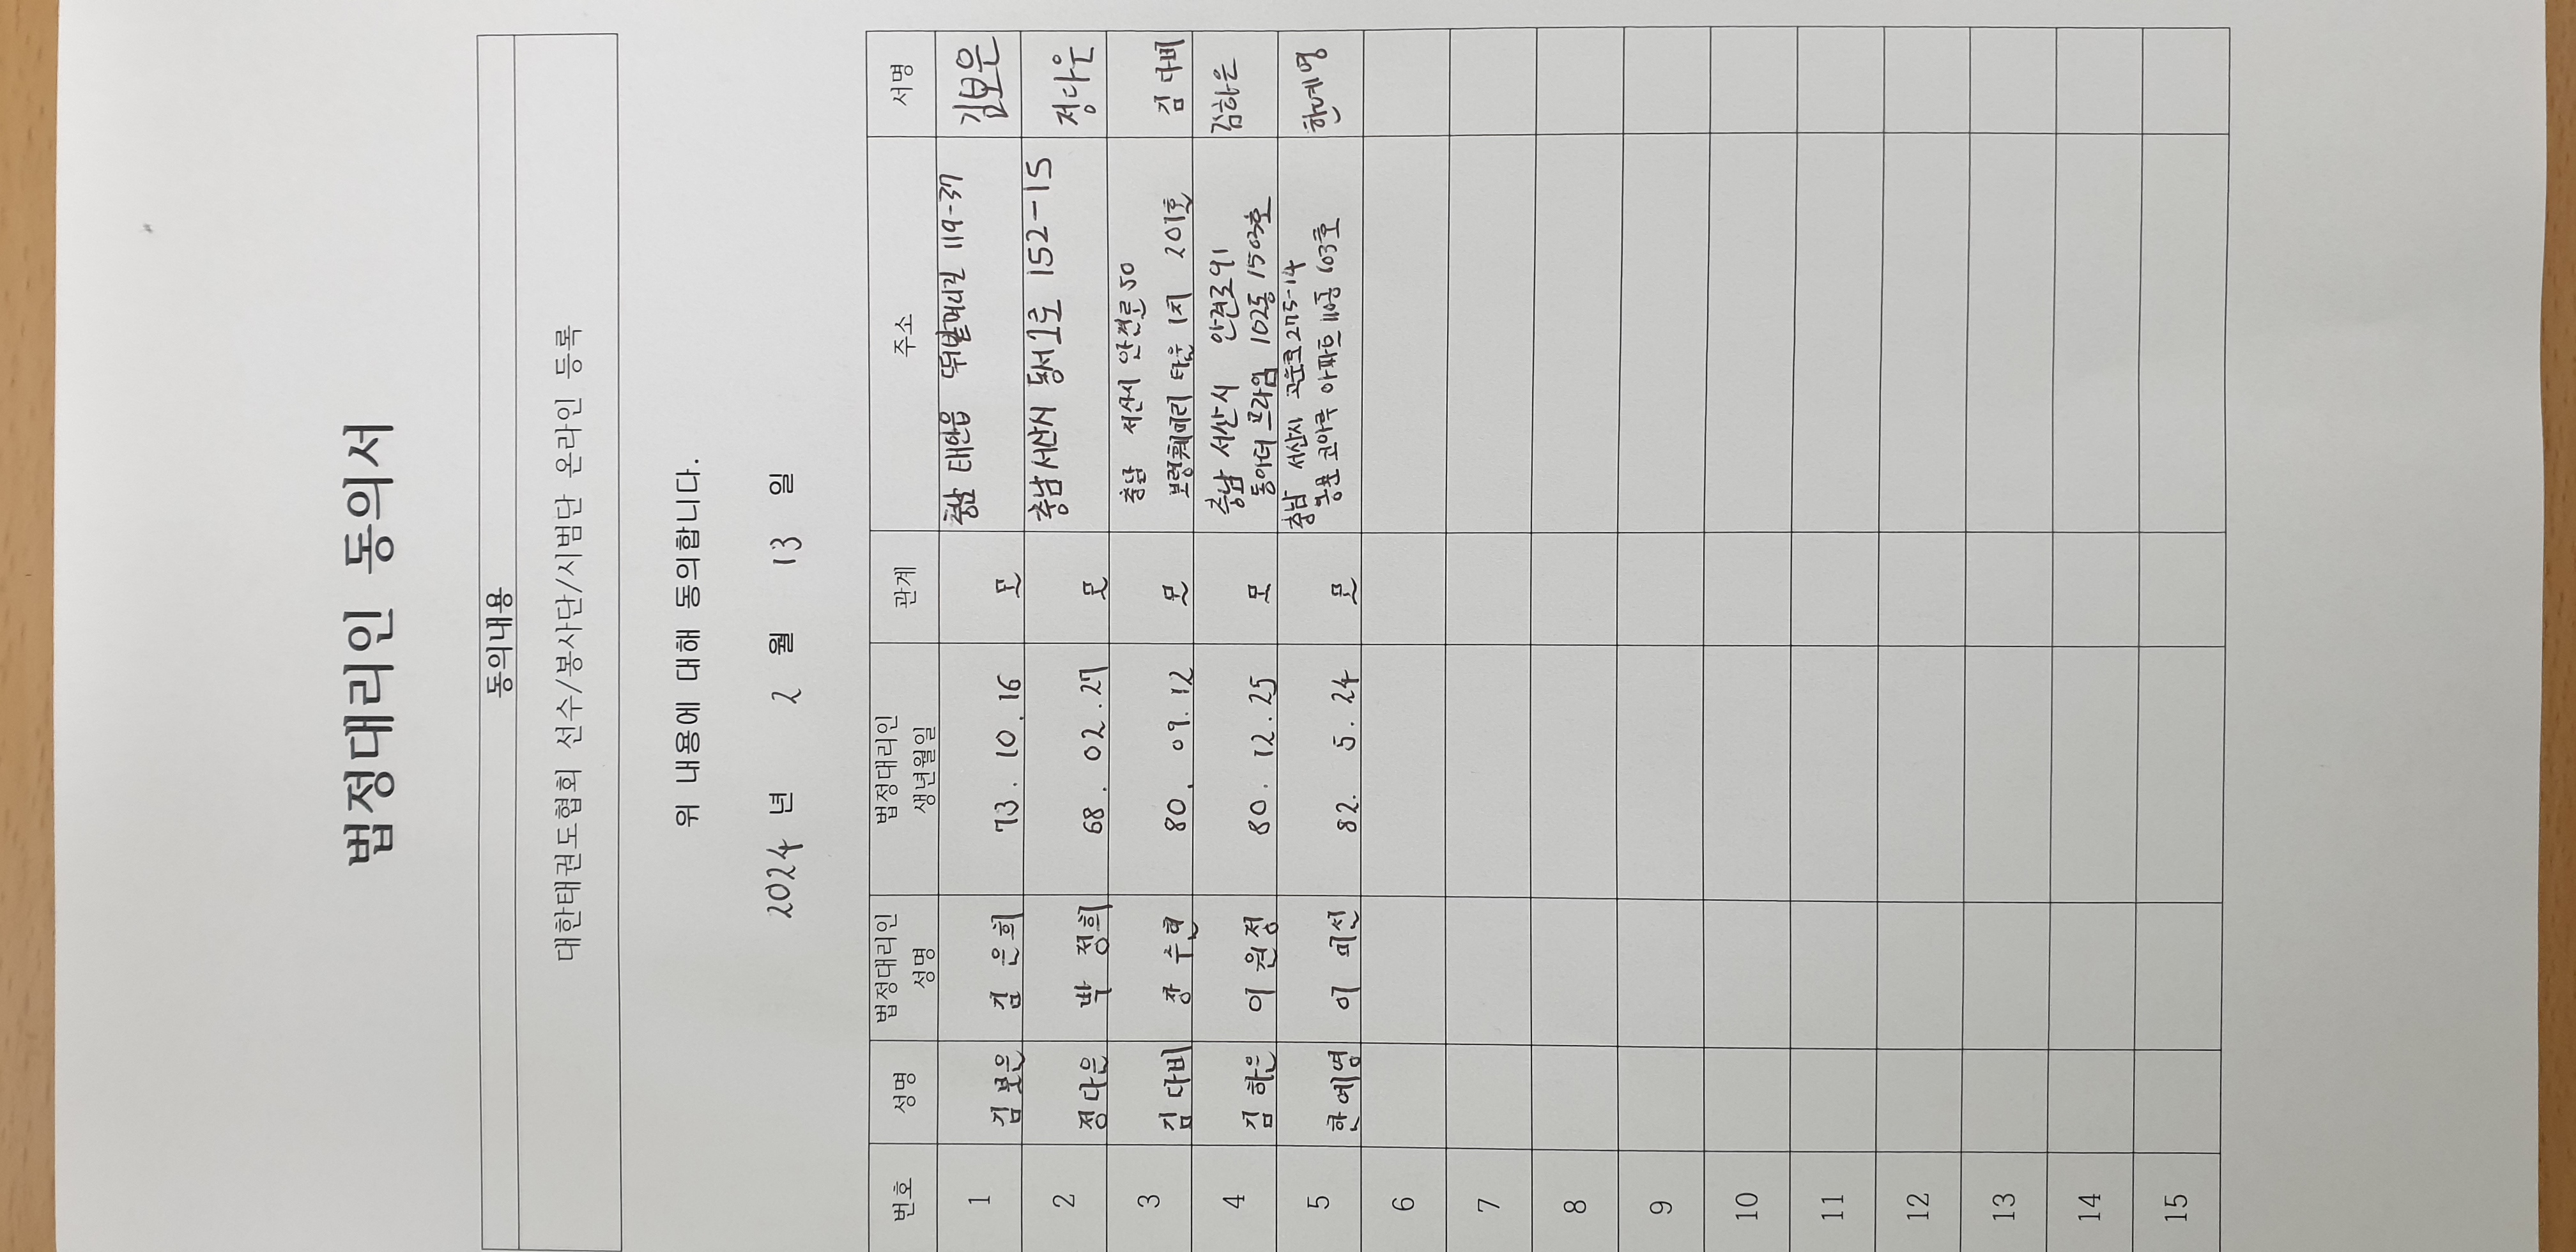 법정대리인 동의서
동의내용
대한태권도협회 선수/봉사단/시범단 온라인 등록
위 내용에 대해 동의합니다.
2024 년 2 월 13 일
번호 성명 법정대리인 성명 법정대리인 생년월일 관계 주소 서명
1 김보은 김은희 73. 10. 16 모 태안읍 119-37 김보은
2 정다은 박정희 68. 02. 27 모 충남 서산시 동서1로 152-15 정다은
3 김다비 장수현 80. 09. 12 모 충남 서산시 안견로 50
보령훼미리 타운 1차 201호 김다비
4 김하은 이원정 80. 12. 25 모 충남 서산시 안견로 91
동아더프라임 102동 1503호 김하은
5 한예명 이미선 82. 5. 24 모 충남 서산시 고운로 275-14
코아루 아파트 110동 603호 한예명
6
7
8
9
10
11
12
13
14
15